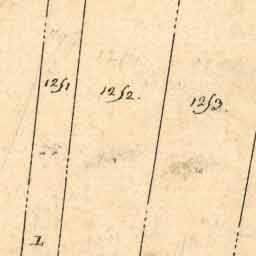 1251
1252.
1253.
I